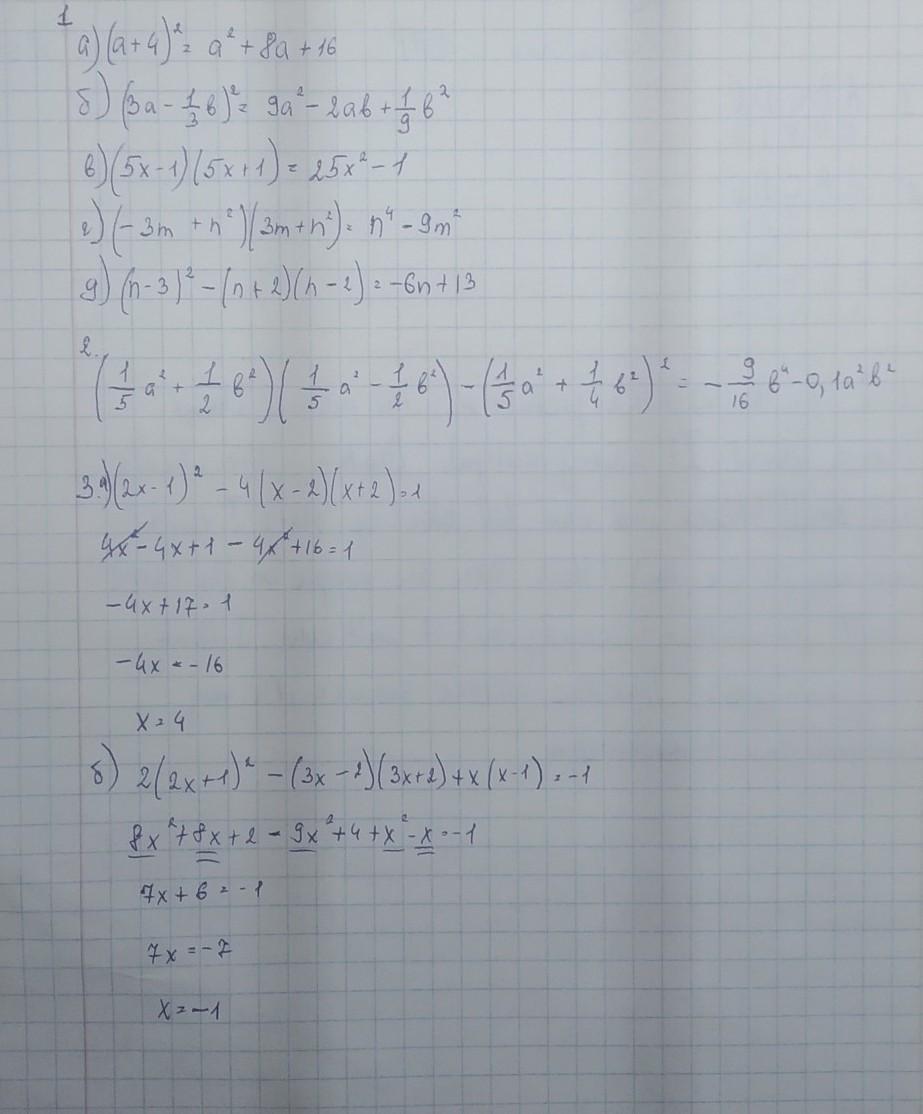 1
а) (a+4)² = a² + 8a + 16
б) (3a - 1/3 b)² = 9a² - 2ab + 1/9 b²
в) (5x-1)(5x+1) = 25x² - 1
г) (-3m + n²)(3m+n²) = n⁴ - 9m²
д) (n-3)² - (n+2)(n-2) = -6n+13
2.
(1/5 a² + 1/2 b²)(1/5 a² - 1/2 b²) - (1/5 a² + 1/4 b²)² = - 9/16 b⁴ - 0,1a²b²
3.а) (2x-1)² - 4(x-2)(x+2) = 1
4x² - 4x+1 - 4x² +16 = 1
-4x+17 = 1
-4x = -16
x = 4
б) 2(2x+1)² - (3x-2)(3x+2) + x(x-1) = -1
8x² + 8x + 2 - 9x² + 4 + x² - x = -1
7x + 6 = -1
7x = -7
x = -1